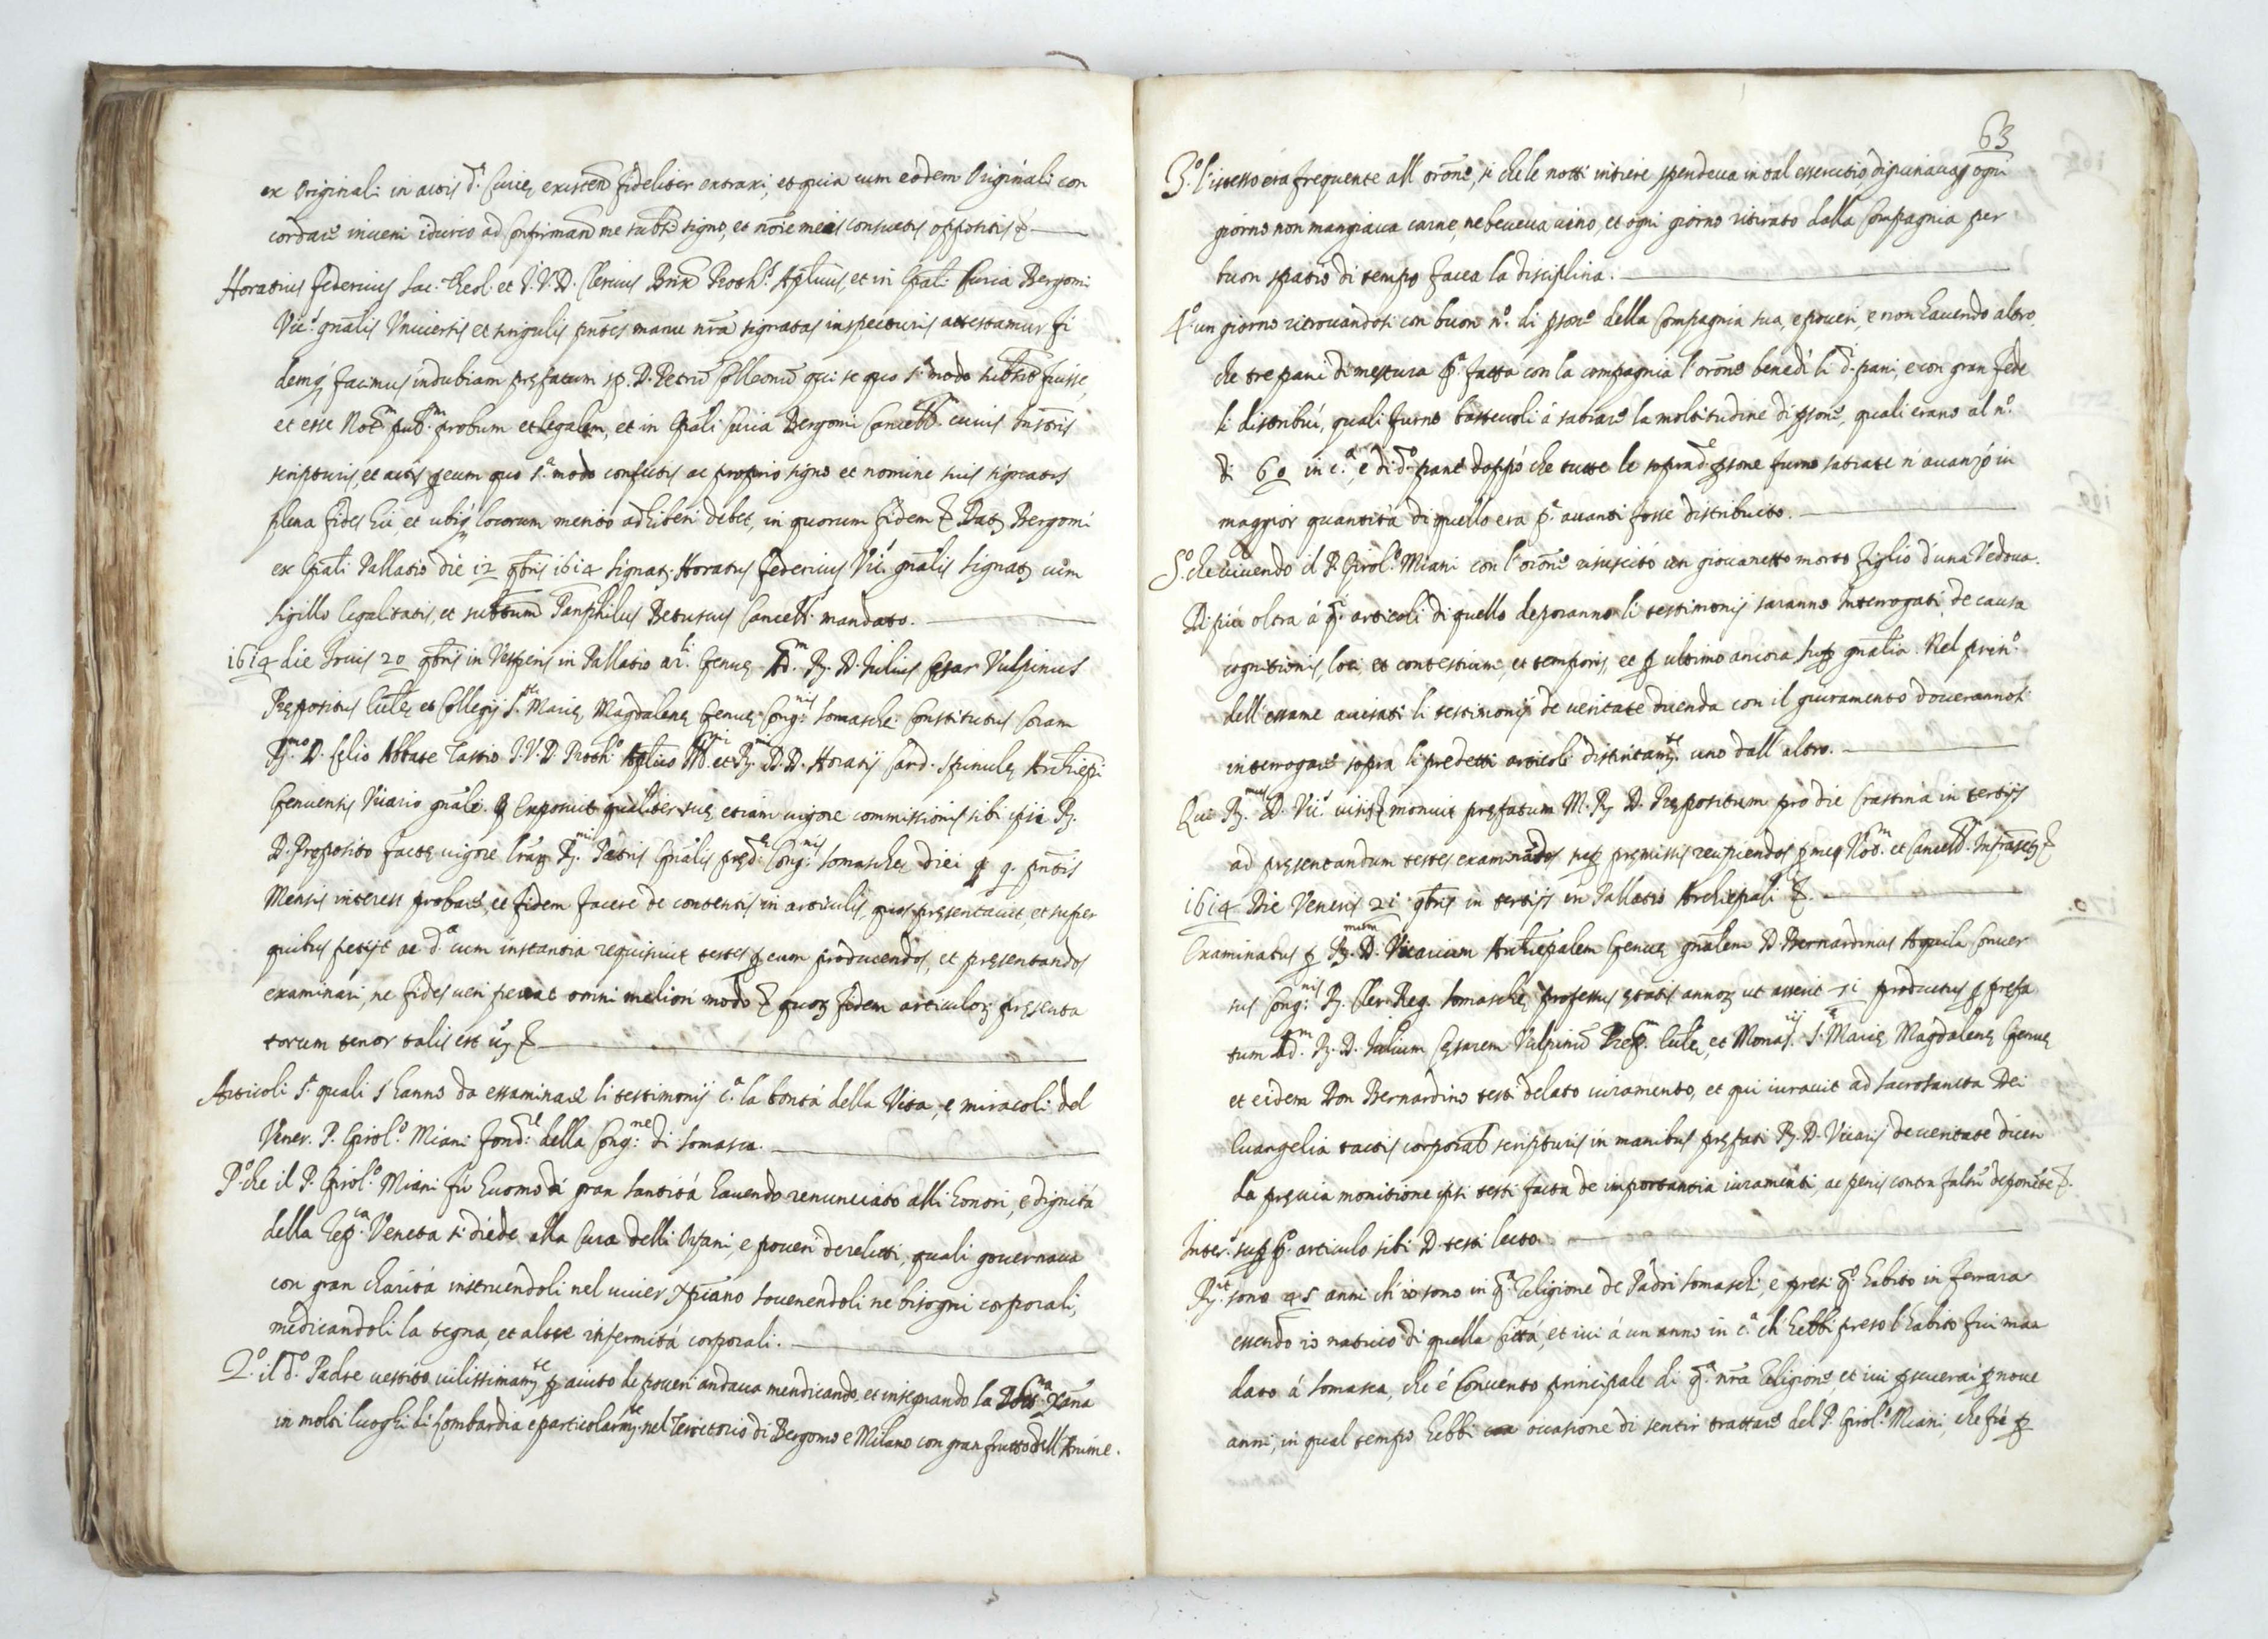 ex Originali in actis d.ę Curię existen. fideliter extraxi, et quia cum eodem Originali con
cordare inveni idcirco ad confirmand. me subscr. signo, et noīe meis consuetis appositis &
Horatius Federicus Sac. Theol. et I.V.D. Clericus Brix. Proth.s Aplicus et in Epali Curia Bergomi
Vic.s gnalis Universis et singulis pntes manu nra signatas inspecturis attestamur fi
demq facimus indubiam prefatum sp. D. Petrū Colleonū qui se quo s.a modo subscr. fuisse,
et esse Not.m pub.m probum et legalem, et in Epali Curia Bergomi Cancell. cuius Instris
scripturis, et actis p eum quo s.a modo confectis ac proprio signo et nomine suis signatis
plena fides hic, et ubiq locorum merito adhiberi debet, in quorum fidem & Dat. Bergomi
ex Epali Pallatio die 12 9bris 1614 Signat. Horatius Federicus Vic. gnalis Signat. cum
sigillo legalitatis, et subttum Panphilus Beturus Cancell. mandato.
1614 die Jovis 20 9bris in Vesperis in Pallatio ar.li Genuę Ad.m R. D. Iulius Cęsar Vulpinus
Prępositus Ecclę et Collegij S.tę Marię Magdalenę Genuę Cong.nis Somaschę Constitutus Coram
R.mo D. Celio Abbate Tassio I.V.D. Proth.o Aplico Ill.mi et R.mi D.D. Horatij Card. Spinulę Archiepi
Genuensis Vicario gnale. Exposuit qualiter sua, etiam vigore commissionis sibi ipsi R.
D. Preposito factę vigore lrarum R.mi Patris Gnalis pręd.ę Cong.nis Somaschę diei 9. pntis
Mensis interest probare, et fidem facere de contentis in articulis, quos pręsentavit, et super
quibus petijt ac d.a cum instantia requisivit testes p eum producendos, et pręsentandos
examinari, ne fides veri pereat omni meliori modo & quorum fidem articulorum pręsenta
torum tenor talis est uz &
Articoli s.a quali s'hanno da essaminare li testimonij c.a la bontà della Vita, e miracoli del
Vener. P. Girol.o Miani fond.re della Cong.ne di Somasca.
P.o che il P. Girol.o Miani fù huomo di gran santità havendo renunciato alli honori, e dignità
della Rep.ca Veneta si diede alla Cura delli Orfani, e poveri derelitti, quali governava
con gran charità instruendoli nel viver xpiano sovenendoli ne bisogni corporali,
medicandoli la tegna, et altre infermità corporali.
2.o il d.o Padre vestito vilissimam.te p aiuto de poveri andava mendicando, et insegnando la Dott.na xana
in molti luoghi di Lombardia e particolarm.te nel Territorio di Bergomo e Milano con gran frutto dell'Anime.
63
3.o l'istesso era frequente all'orone, si che le notti intiere spendeva in tal essercitio, digiunava p ogni
giorno non mangiava carne, ne beveva vino, et ogni giorno ritirato dalla Compagnia per
buon spatio di tempo facea la disciplina.
4.o un giorno ritrovandosi con buon n.o di psone della Compagnia sua, e poveri, e non havendo altro,
che tre pani di mestura p.a fatta con la compagnia l'orone benedì li d.i pani, e con gran fede
li distribuì, quali furno bastevoli à satiare la moltitudine di psone, quali erano al n.o
di 60 in c.a, e di d.o pane doppò che tutte le soprad.e psone furno satiate n'avanzò in
maggior quantità di quello era p.a avanti fosse distribuito.
5.o che vivendo il P. Girol.o Miani con l'orone risuscitò un giovanetto morto figlio d'una Vedova.
Di più oltra à q.i articoli di quello deporanno li testimonij saranno Interrogati de causa
cognitionis, loci, et contestium, et temporis, et p ultimo ancora sup gnalia. Nel prin.o
dell'essame avisati li testimonij de veritate dicenda con il giuramento doverannosi
interrogare sopra li predetti articoli distintam.te uno dall'altro.
Qui R.mus D. Vic.s visis & monuit pręfatum M. R. D. Prępositum pro die Crastina in tertijs
ad pręsentandum testes examinandos sup pręmissis recipiendos p me Not.m et Cancell.m Infrascr. &
1614 Die Veneris 21 9bris in tertijs in Pallatio Archiepali &.
Examinatus p R.mum D. Vicarium Archiepalem Genuę gnalem D. Bernardinus Aquila Conver
sus Cong.nis R. Cler. Reg. Somaschę professus ętatis annorum ut asserit 51 productus p prefa
tum Ad.m R. D. Iulium Cęsarem Vulpinū Prep.m Ecclę, et Monas.rij S.tę Marię Magdalenę Genuę
et eidem Don Bernardino testi delato iuramento, et qui iuravit ad Sacrosancta Dei
Evangelia tactis corporalr scripturis in manibus pręfati R. D. Vicarij de veritate dicen
da pręvia monitione ipsi testi facta de importantia iuramenti, ac penis contra falsū deponētes &.
Inter.s sup p.o articulo sibi D. testi lecto.
R.it sono 45 anni ch'io sono in q.a Religione de Padri Somaschi, e presi q.o habito in Ferrara
essendo io nativo di quella Città, et ivi à un anno in c.a ch'hebbi preso l'habito fui man
dato à Somasca, che è Convento principale di q.a nra Religione, et ivi pseverai p nove
anni, in qual tempo hebbi occasione di sentir trattare del P. Girol.o Miani, che fù p